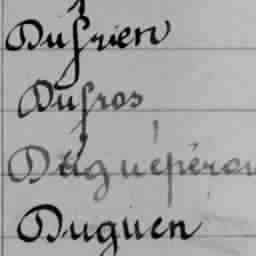 Dufrien
Dufros
Duguépérou
Duguen